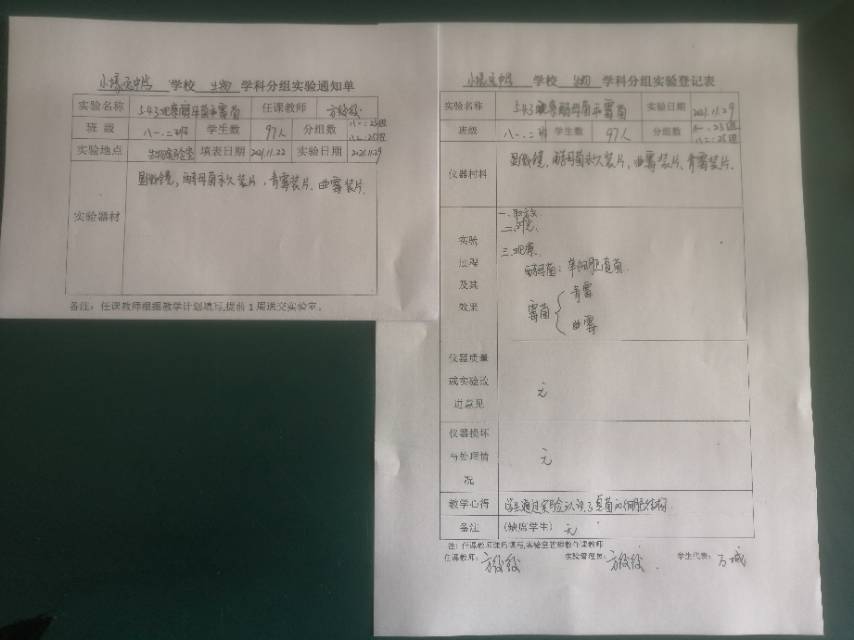 学校 生物 学科分组实验通知单
实验名称 5.4.3观察酵母菌和霉菌 任课教师
班级 八一.二班 学生数 97人 分组数 八一:25组
八二:25组
实验地点 生物实验室 填表日期 2021.11.22 实验日期 2021.11.29
实验器材 显微镜,酵母菌永久装片,青霉装片、曲霉装片.
备注:任课教师根据教学计划填写,提前1周送交实验室.
学校 生物 学科分组实验登记表
实验名称 5.4.3观察酵母菌和霉菌 实验日期 2021.11.29
班级 八一.二班 学生数 97人 分组数 八一:25组
八二:25组
仪器材料 显微镜、酵母菌永久装片、曲霉装片、青霉装片.
实验过程及其效果
一.取放
二.对光.
三.观察
酵母菌:单细胞真菌.
霉菌 { 青霉
曲霉
仪器质量或实验改进意见 无
仪器损坏与处理情况 无
教学心得 学生通过实验认识了真菌的细胞结构.
备注 (缺席学生) 无
注:任课教师课后填写,实验室
任课教师: 实验管理员: 学生代表: